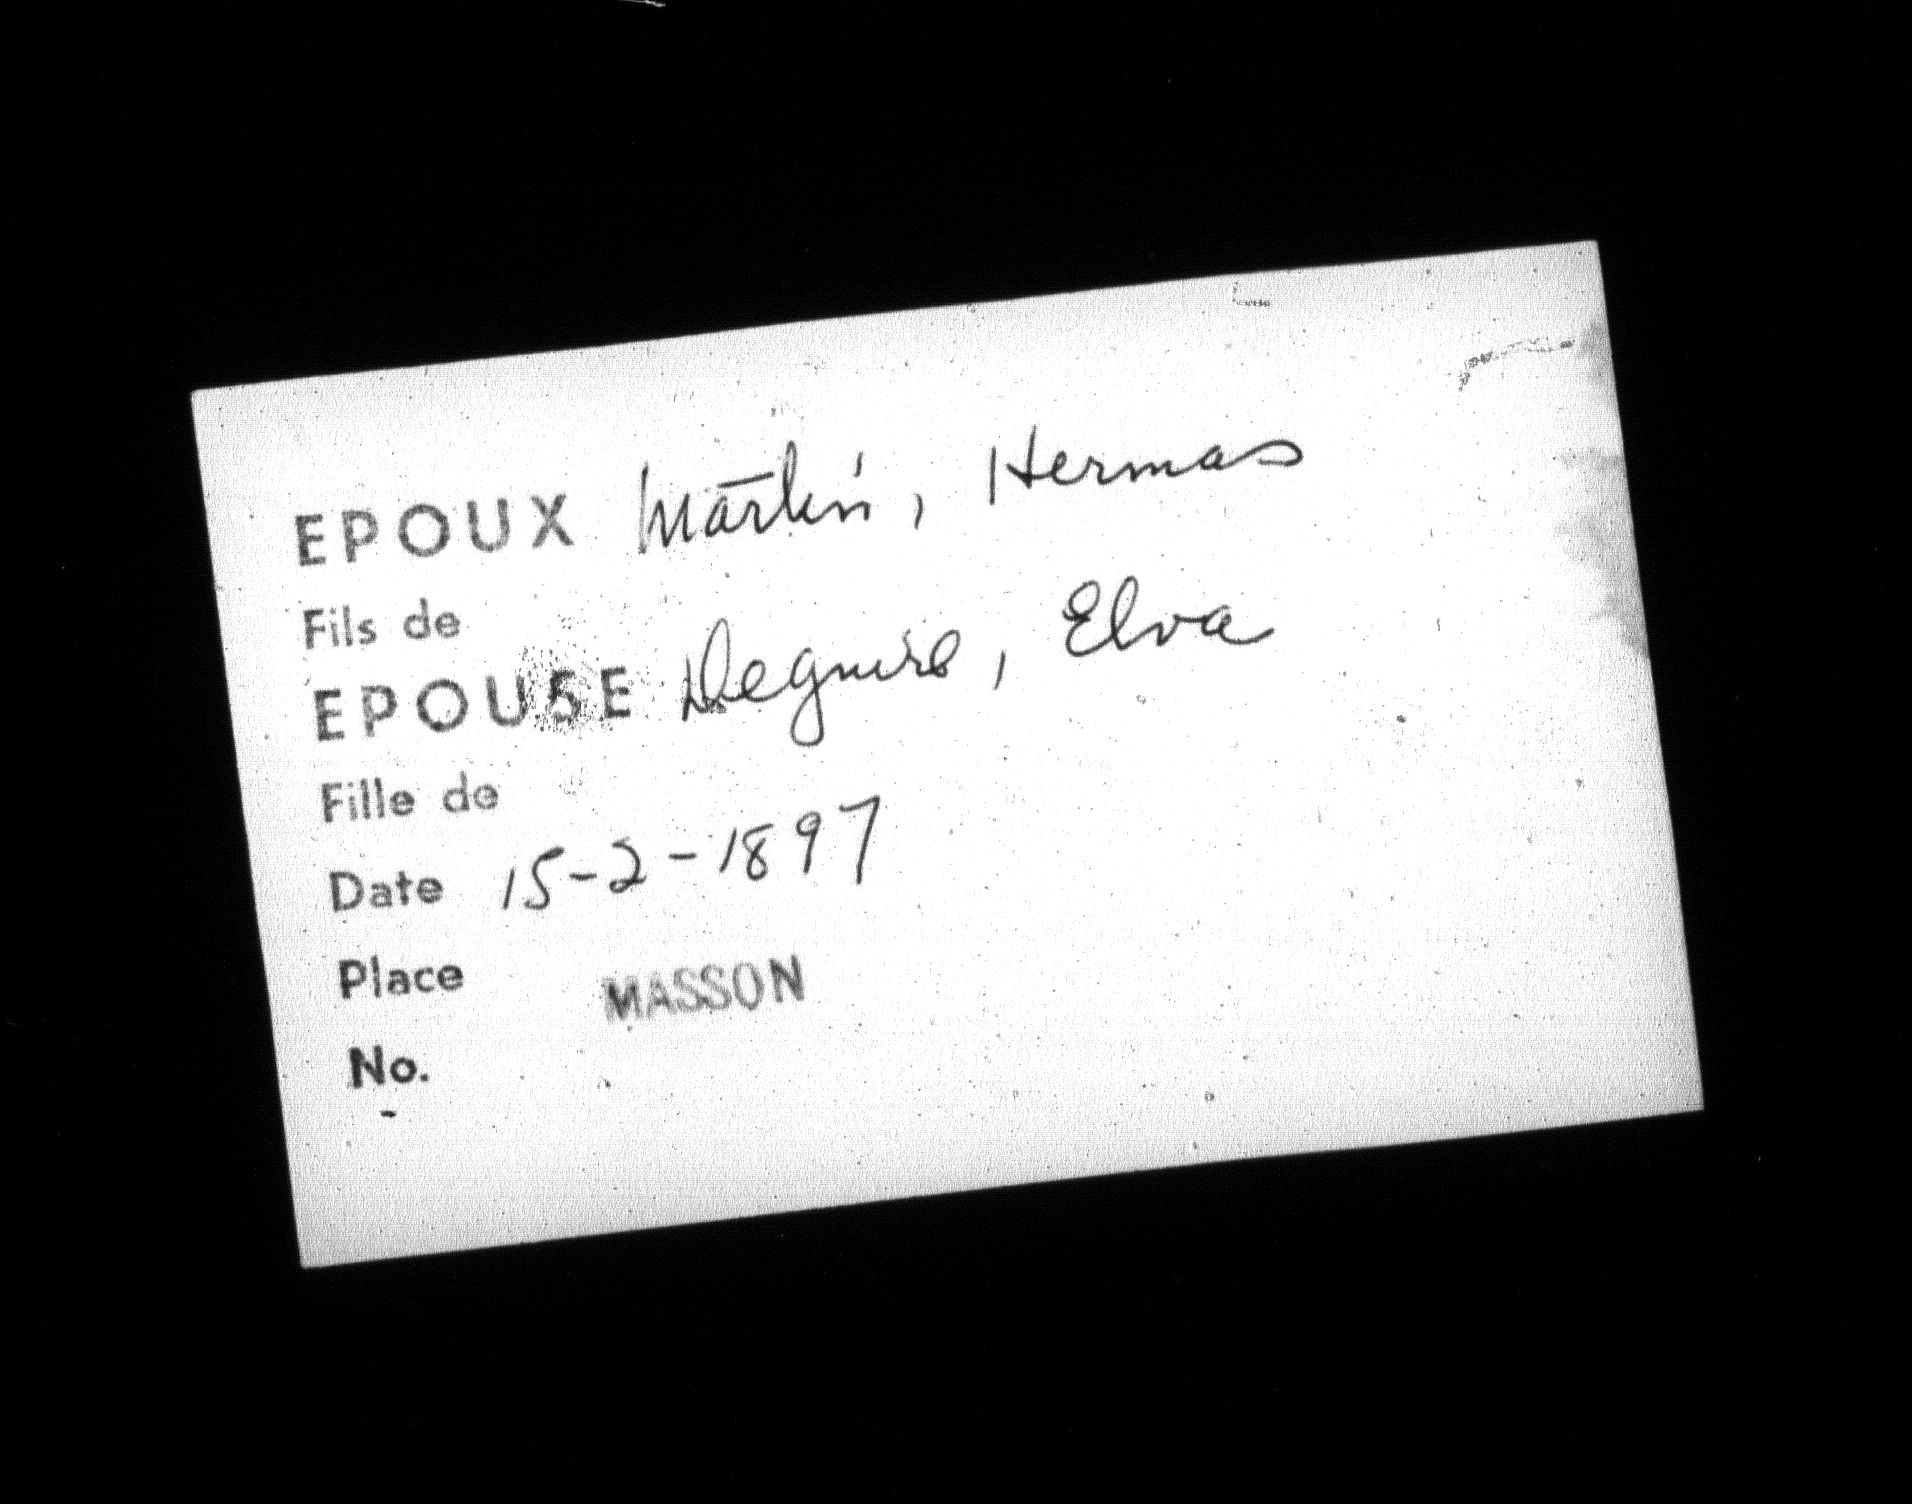 EPOUX Martin, Hermas
Fils de
EPOUSE Deguire, Elva
Fille de
Date 15-2-1897
Place MASSON
No.